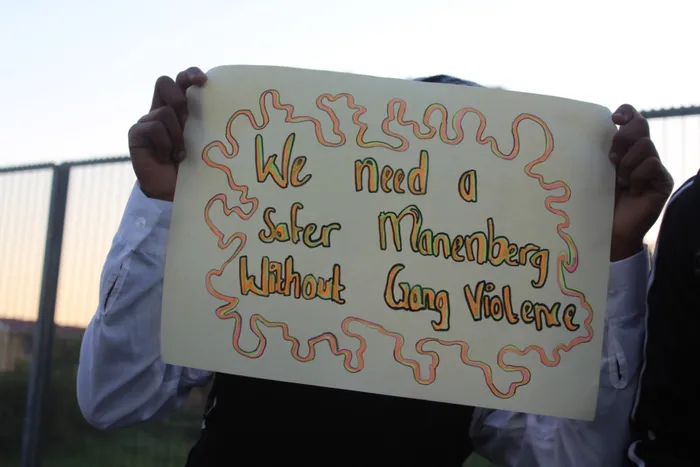 We need a
Safer Manenberg
Without Gang Violence